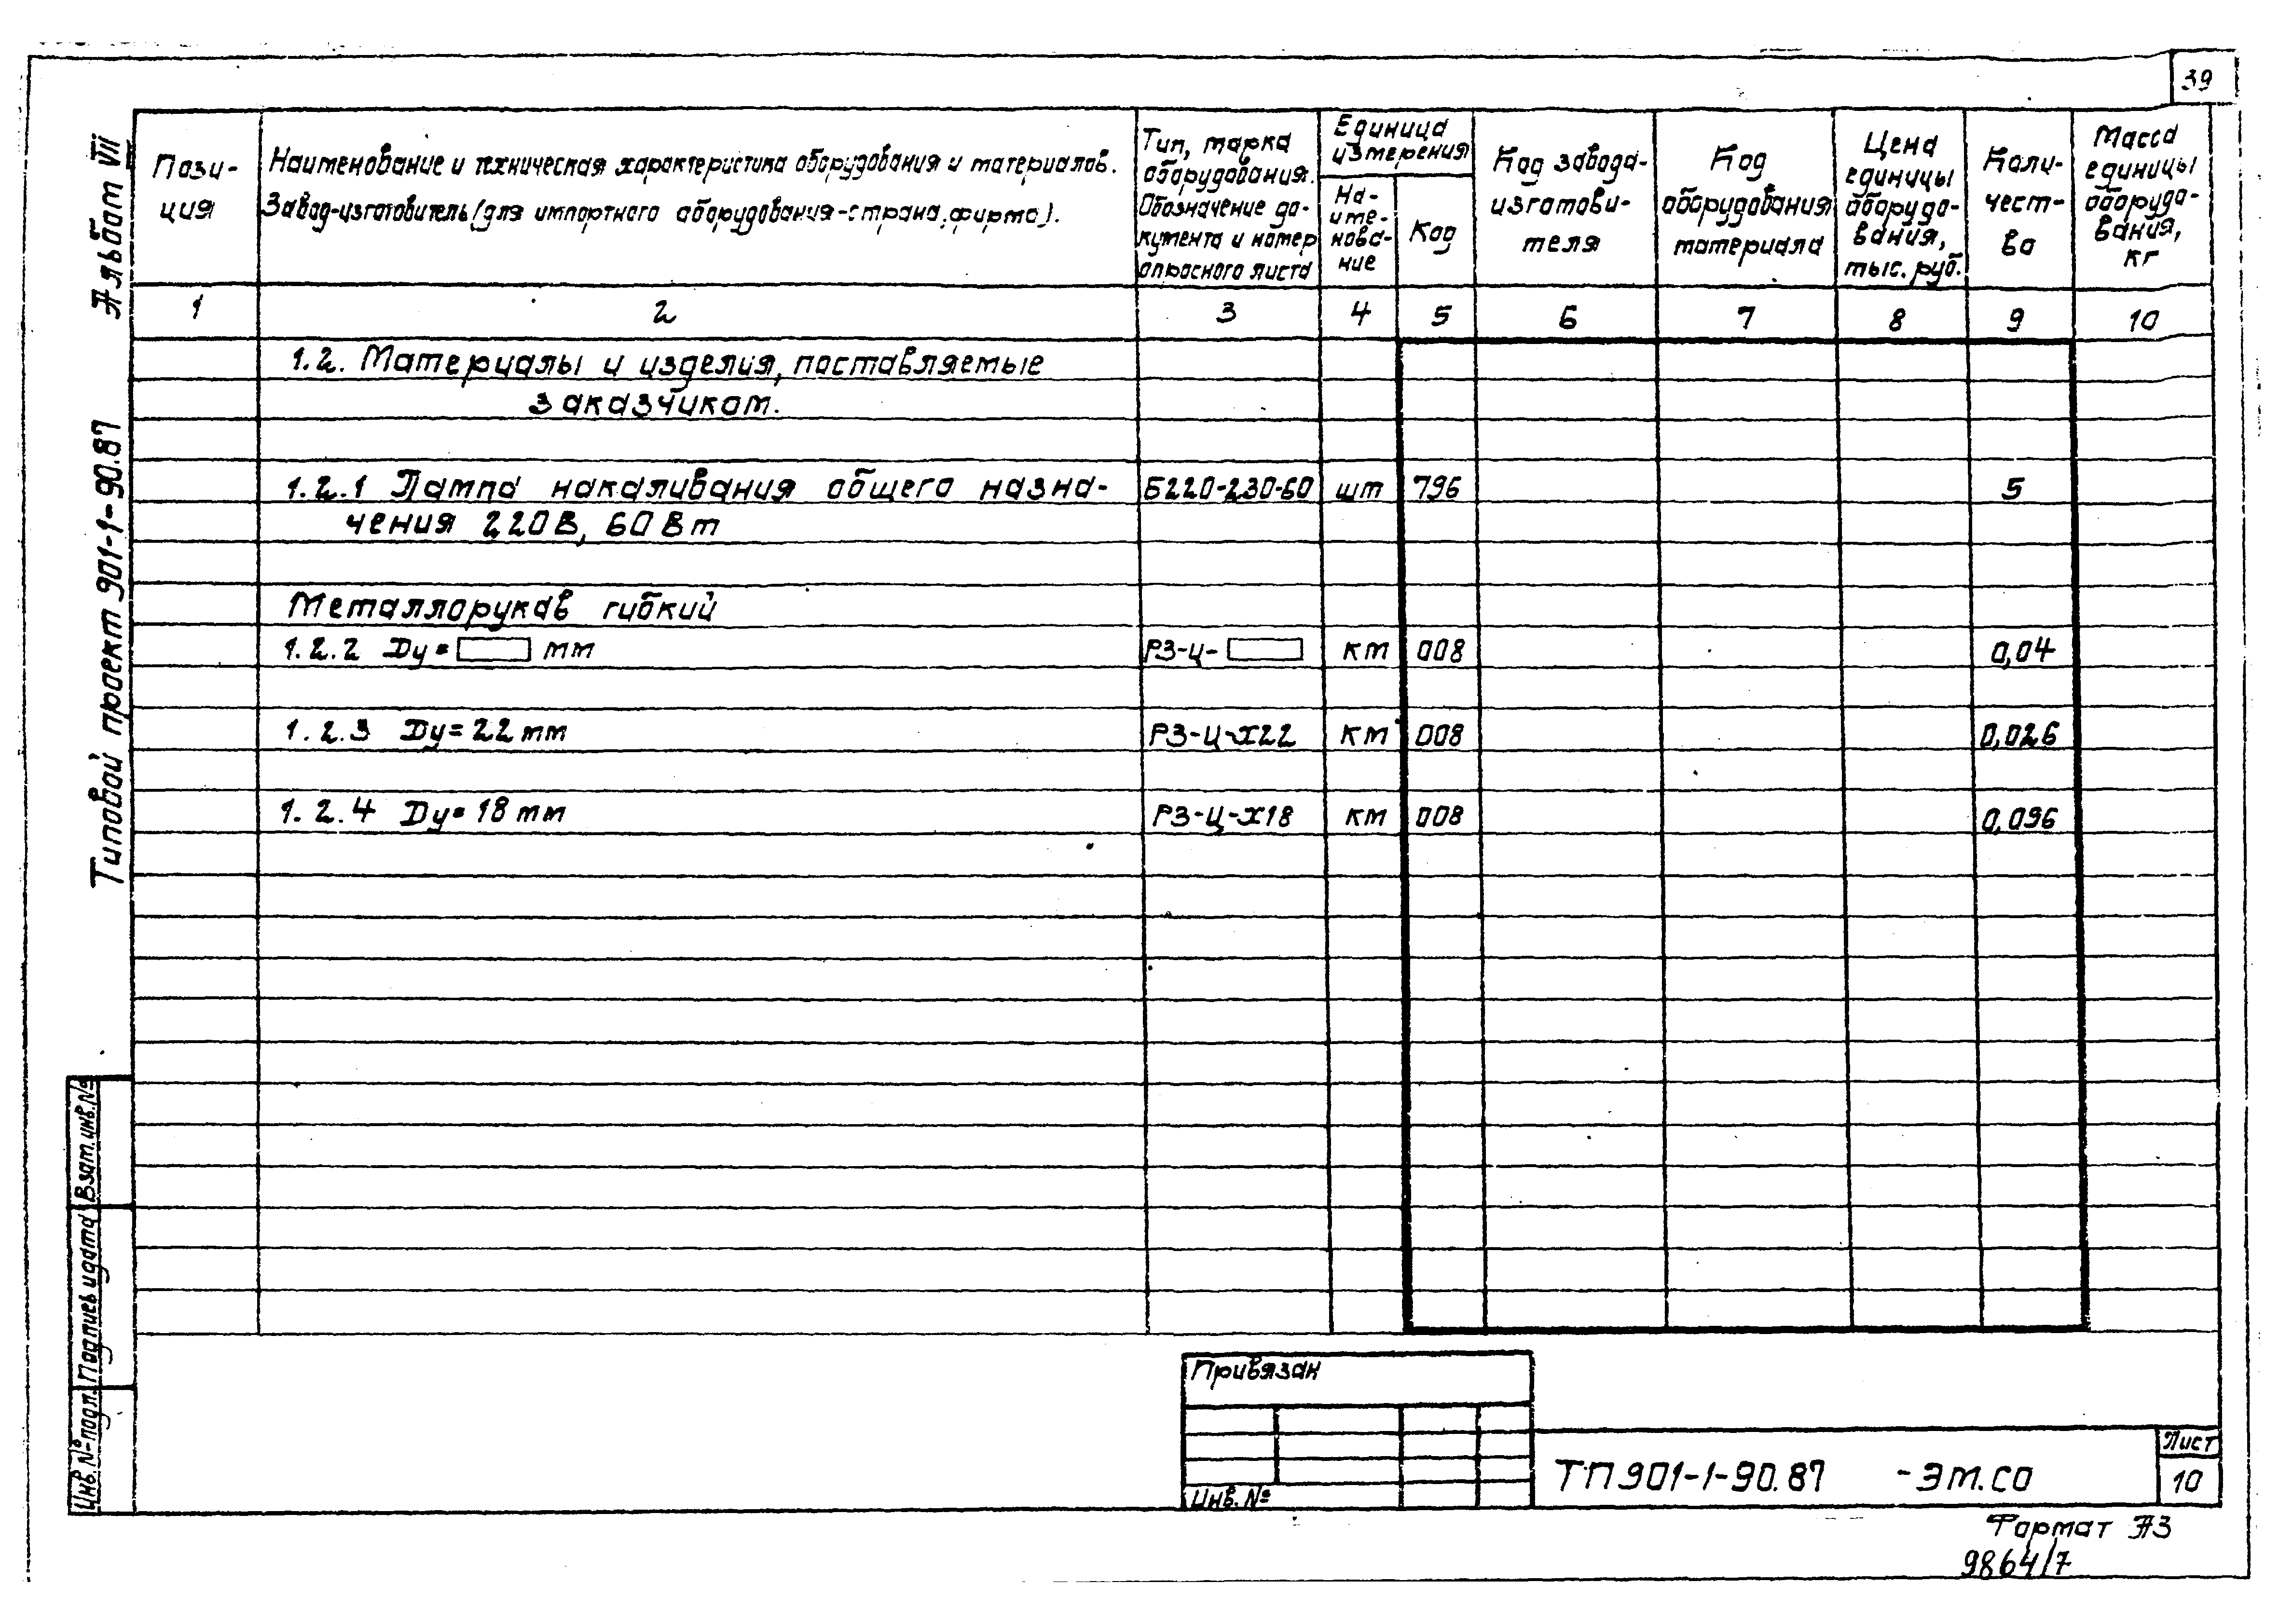 39
Альбом VII
Типовой проект 901-1-90.87
Пози-
ция
Наименование и техническая характеристика оборудования и материалов.
Завод-изготовитель (для импортного оборудования-страна, фирма).
Тип, марка
оборудования.
Обозначение до-
кумента и номер
опросного листа
Единица
измерения
На-
име-
нова-
ние
Код
Код завода-
изготови-
теля
Код
оборудования
материала
Цена
единицы
оборудо-
вания,
тыс. руб.
Коли-
чест-
во
Масса
единицы
оборудо-
вания,
кг
1 2 3 4 5 6 7 8 9 10
1.2. Материалы и изделия, поставляемые
заказчиком.
1.2.1 Лампа накаливания общего назна- Б220-230-60 шт 796 5
чения 220В, 60Вт
Металлорукав гибкий
1.2.2 Dу= мм РЗ-Ц- км 008 0,04
1.2.3 Dу=22мм РЗ-Ц-Х22 км 008 0,026
1.2.4 Dу=18мм РЗ-Ц-Х18 км 008 0,096
Взам.инв.№
Подпись и дата
Инв.№подл.
Привязан
Инв.№
ТП901-1-90.87 -ЭМ.СО
Лист
10
Формат А3
9864/7